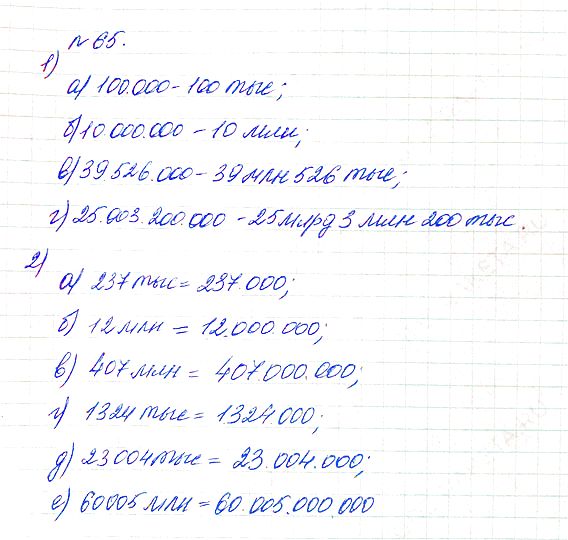 №65.
1)
а) 100.000 - 100 тыс;
б) 10.000.000 - 10 млн;
в) 39.526.000 - 39 млн 526 тыс;
г) 25.003.200.000 - 25 млрд 3 млн 200 тыс.
2)
а) 237 тыс = 237.000;
б) 12 млн = 12.000.000;
в) 407 млн = 407.000.000;
г) 1324 тыс = 1324.000;
д) 23004 тыс = 23.004.000;
е) 60005 млн = 60.005.000.000